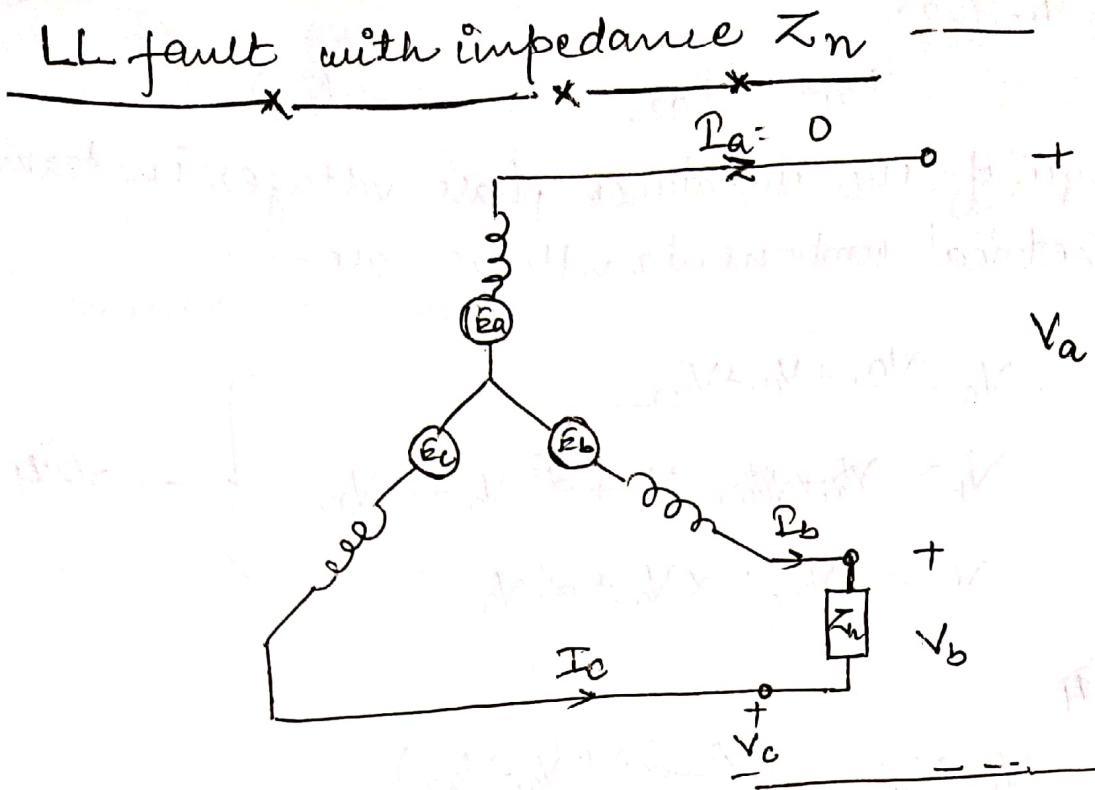 LL fault with impedance Zn
Ia = 0
+
Ea
Va
Ec
Eb
Ib
+
Zn
Vb
Ic
+
Vc
-